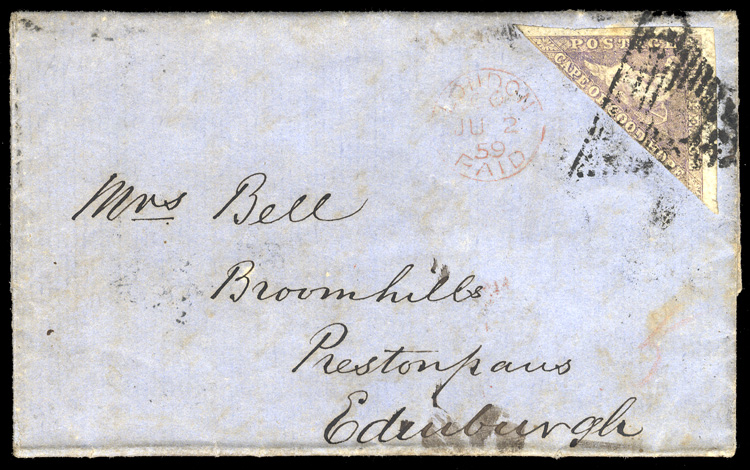 POSTAGE
CAPE OF GOOD HOPE
LONDON
JU 2
59
PAID
Mrs Bell
Broomhills
Prestonpans
Edinburgh